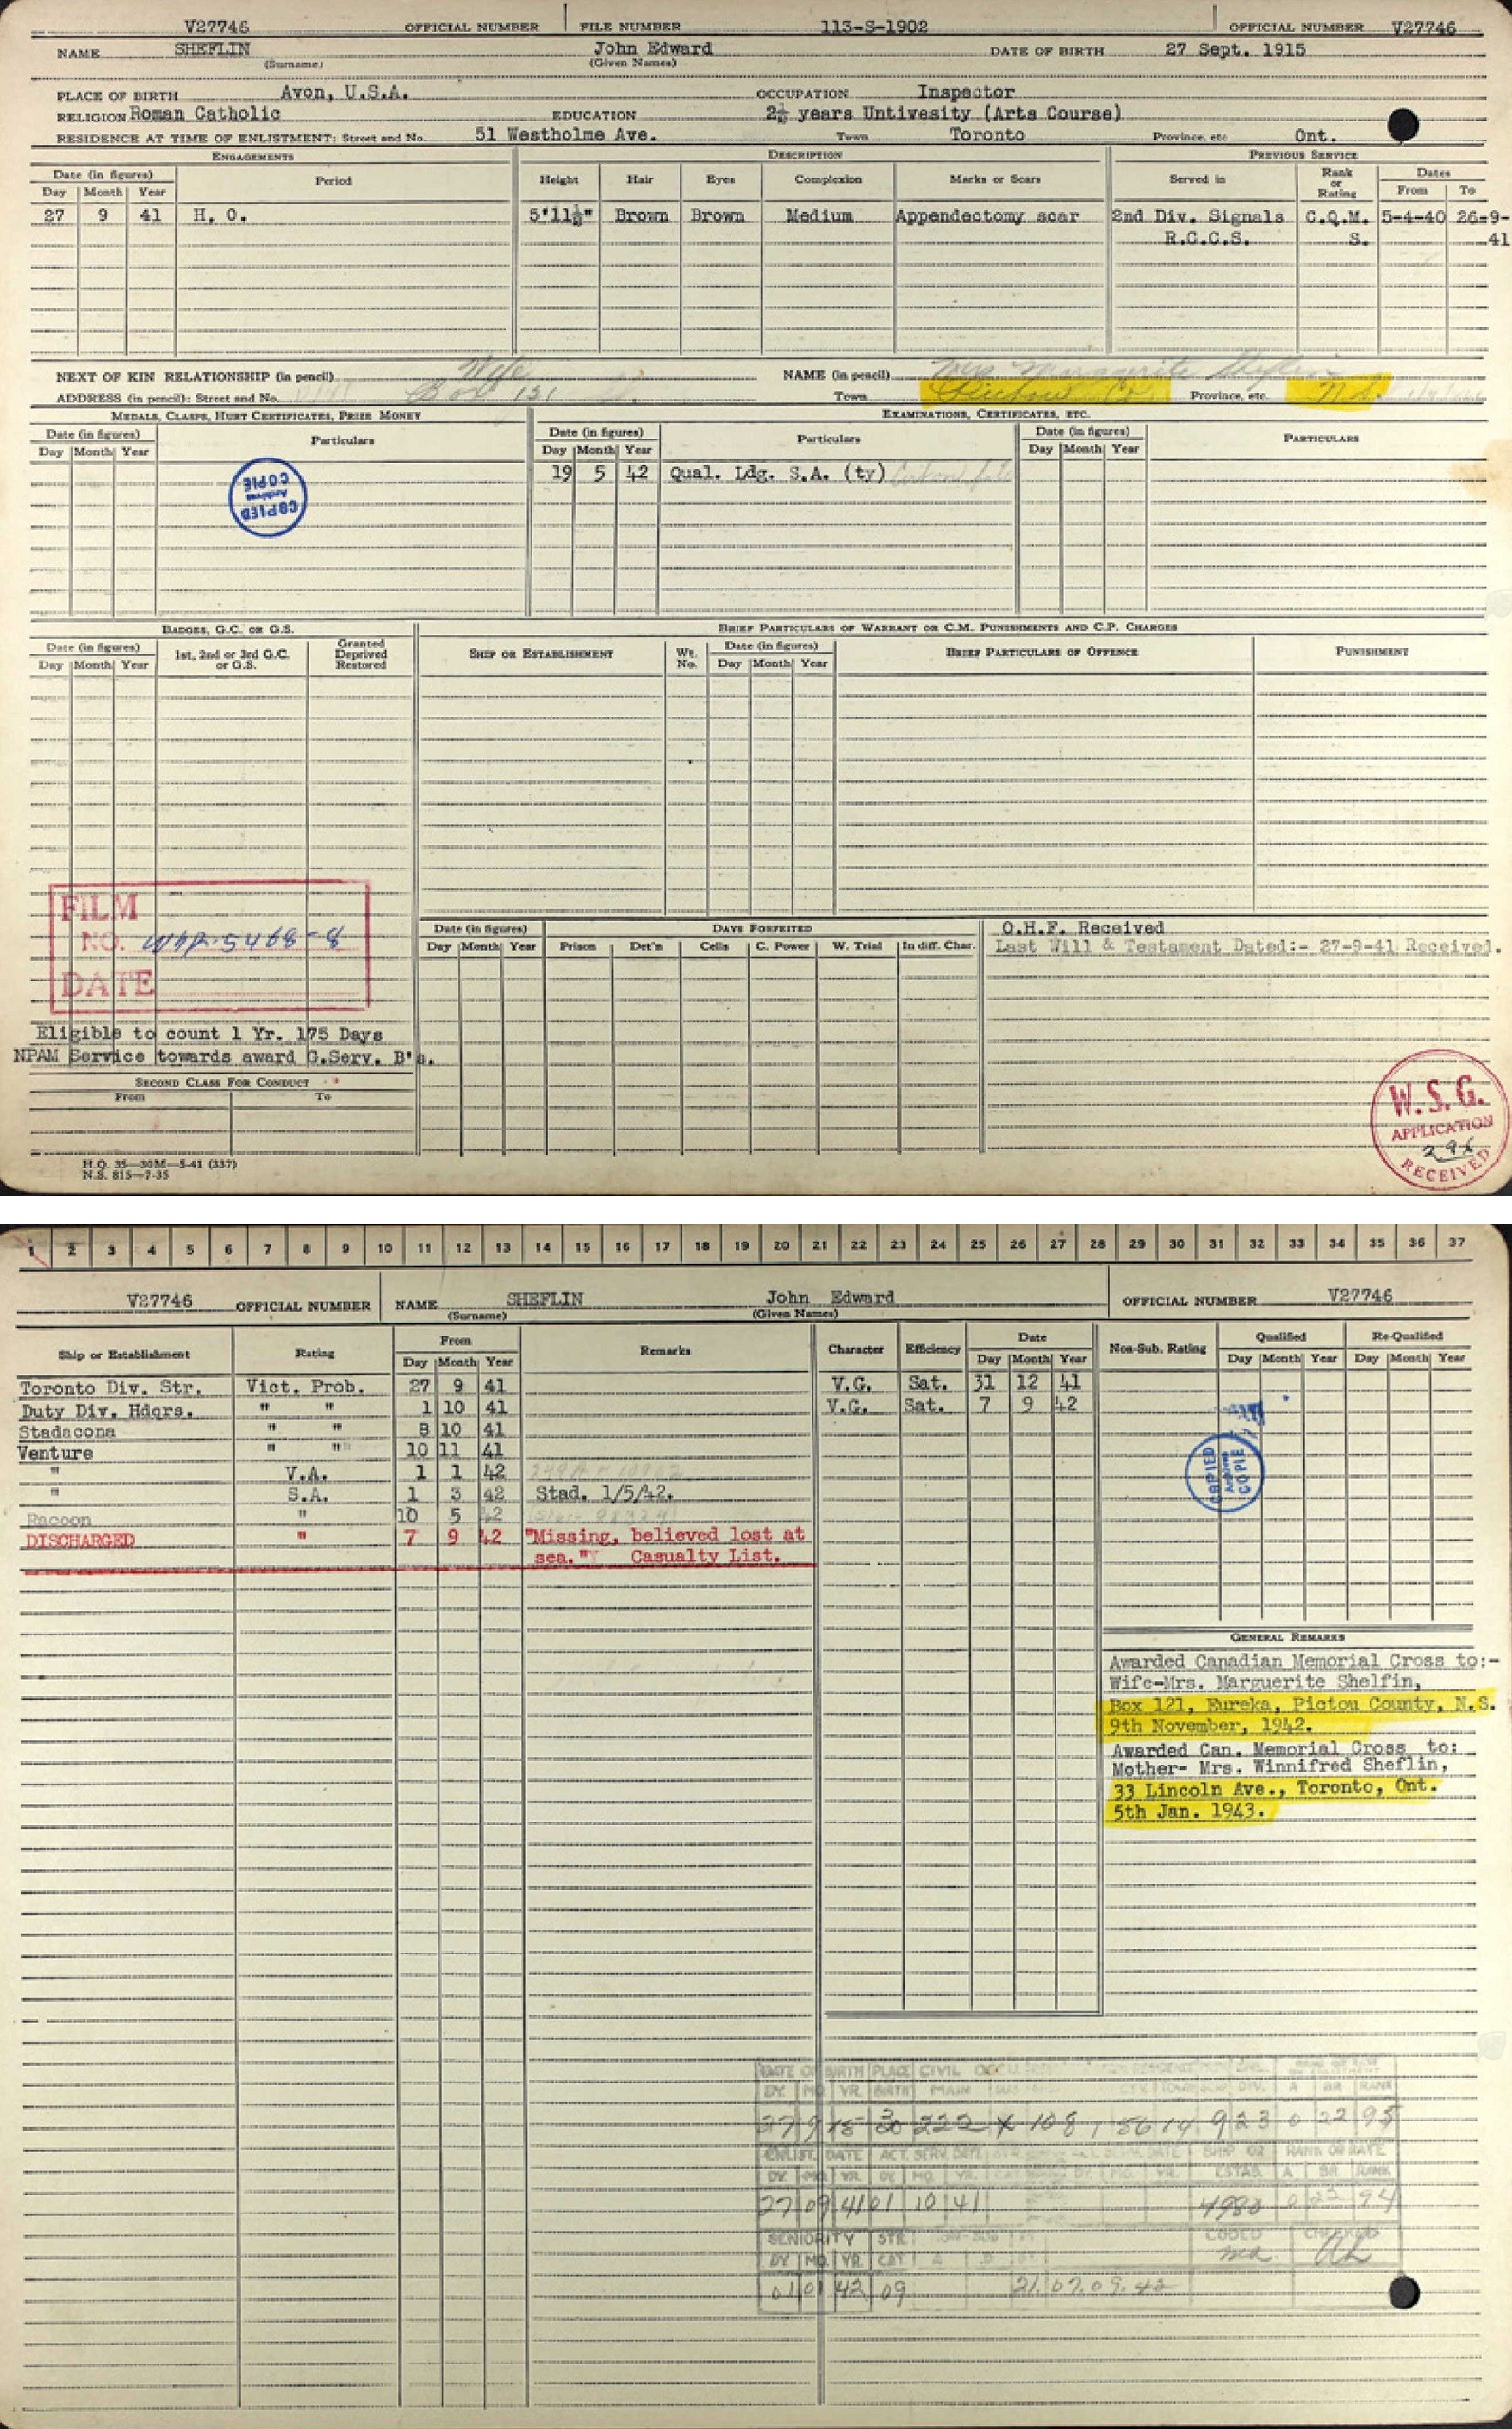 V27746 OFFICIAL NUMBER FILE NUMBER 113-S-1902 OFFICIAL NUMBER V27746
NAME SHEFLIN John Edward DATE OF BIRTH 27 Sept. 1915
(Surname) (Given Names)
PLACE OF BIRTH Avon, U.S.A. OCCUPATION Inspector
RELIGION Roman Catholic EDUCATION 2½ years Untivesity (Arts Course)
RESIDENCE AT TIME OF ENLISTMENT: Street and No. 51 Westholme Ave. Town Toronto Province, etc Ont.
ENGAGEMENTS DESCRIPTION PREVIOUS SERVICE
Date (in figures) Period Height Hair Eyes Complexion Marks or Scars Served in Rank or Rating Dates
Day Month Year From To
27 9 41 H. O. 5'11½" Brown Brown Medium Appendectomy scar 2nd Div. Signals C.Q.M. 5-4-40 26-9-
R.C.C.S. S. 41
NEXT OF KIN RELATIONSHIP (in pencil) Wife NAME (in pencil) Mrs. Marguerite Sheflin
ADDRESS (in pencil): Street and No. Box 131 Town Province, etc.
MEDALS, CLASPS, HURT CERTIFICATES, PRIZE MONEY EXAMINATIONS, CERTIFICATES, ETC.
Date (in figures) Particulars Date (in figures) Particulars Date (in figures) PARTICULARS
Day Month Year Day Month Year Day Month Year
19 5 42 Qual. Ldg. S.A. (ty)
COPIED
Archives
COPIE
BADGES, G.C. OR G.S. BRIEF PARTICULARS OF WARRANT OR C.M. PUNISHMENTS AND C.P. CHARGES
Date (in figures) 1st, 2nd or 3rd G.C. or G.S. Granted Deprived Restored SHIP OR ESTABLISHMENT Wt. No. Date (in figures) BRIEF PARTICULARS OF OFFENCE PUNISHMENT
Day Month Year Day Month Year
FILM
NO. 5468-8
DATE
Date (in figures) DAYS FORFEITED O.H.F. Received
Day Month Year Prison Det'n Cells C. Power W. Trial In diff. Char. Last Will & Testament Dated:- 27-9-41 Received.
Eligible to count 1 Yr. 175 Days
NPAM Service towards award G.Serv. B's.
SECOND CLASS FOR CONDUCT
From To
W.S.G.
APPLICATION
RECEIVED
H.Q. 35—30M—5-41 (337)
N.S. 815—7-35
1 2 3 4 5 6 7 8 9 10 11 12 13 14 15 16 17 18 19 20 21 22 23 24 25 26 27 28 29 30 31 32 33 34 35 36 37
V27746 OFFICIAL NUMBER NAME SHEFLIN John Edward OFFICIAL NUMBER V27746
(Surname) (Given Names)
Ship or Establishment Rating From Remarks Character Efficiency Date Non-Sub. Rating Qualified Re-Qualified
Day Month Year Day Month Year Day Month Year Day Month Year
Toronto Div. Str. Vict. Prob. 27 9 41 V.G. Sat. 31 12 41
Duty Div. Hdqrs. " " 1 10 41 V.G. Sat. 7 9 42
Stadacona " " 8 10 41
Venture " " 10 11 41
" V.A. 1 1 42
" S.A. 1 3 42 Stad. 1/5/42.
Racoon " 10 5 42
DISCHARGED " 7 9 42 "Missing, believed lost at
sea." Casualty List.
COPIED
Archives
COPIE
GENERAL REMARKS
Awarded Canadian Memorial Cross to:-
Wife-Mrs. Marguerite Shelfin,
Box 121, Eureka, Pictou County, N.S.
9th November, 1942.
Awarded Can. Memorial Cross to:
Mother- Mrs. Winnifred Sheflin,
33 Lincoln Ave., Toronto, Ont.
5th Jan. 1943.
DATE OF BIRTH PLACE CIVIL
DY. MO. YR. BIRTH MAIN DIV. A BR RANK
27 9 15 30 222 X 108 1 5614 923 0 22 95
ENLIST. DATE ACT. SERV. DATE SHIP OR RANK OR RATE
DY. MO. YR. DY. MO. YR. ESTAB. A BR. RANK
27 09 41 01 10 41 4980 0 23 94
SENIORITY STR. CODED CHECKED
DY. MO. YR. CAT
01 01 42 09 21.07.09.42